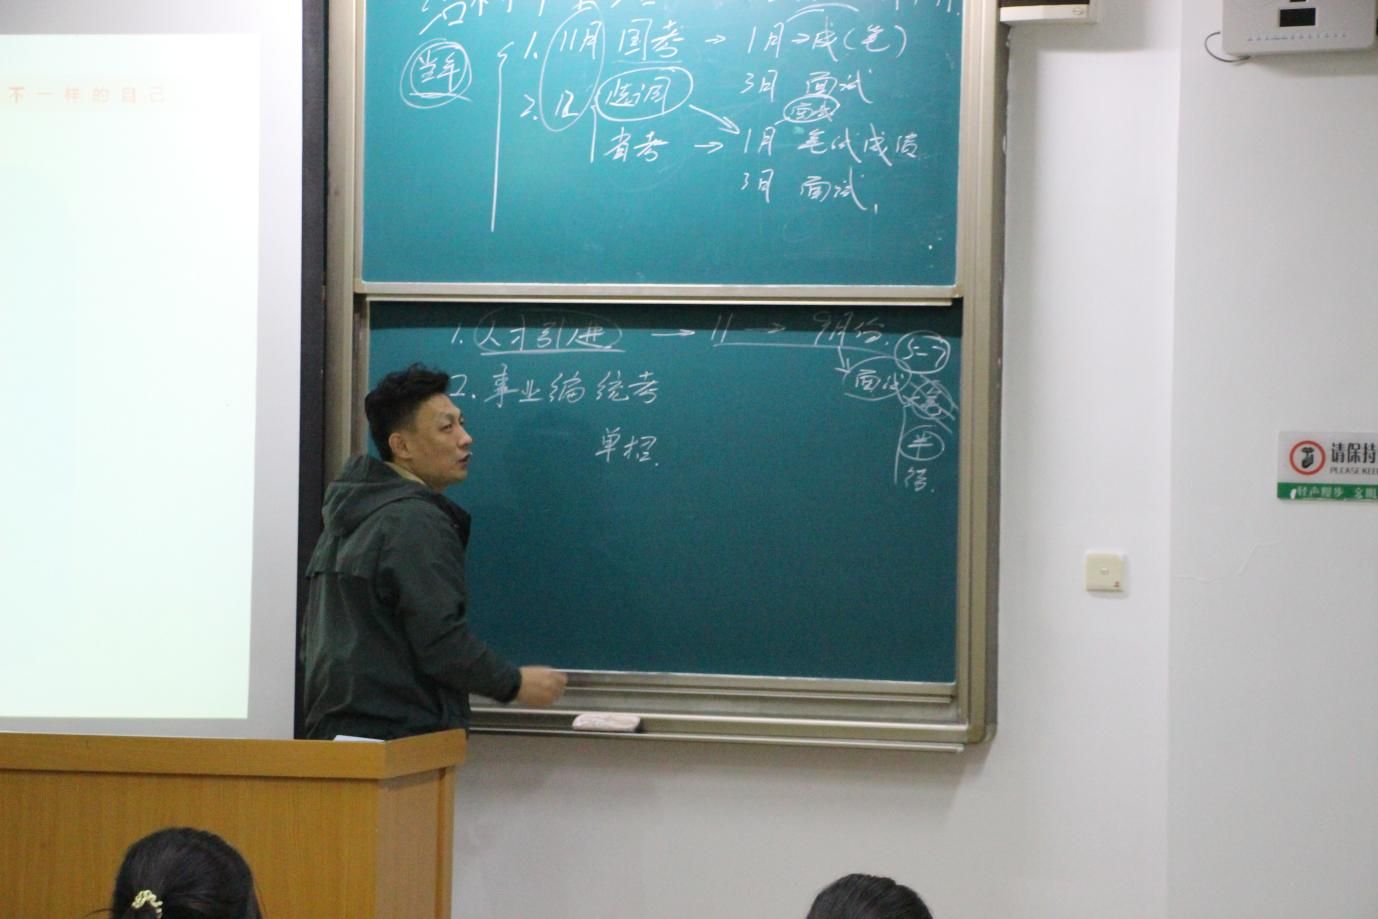 不一样的自己
当年
1. 11月 国考 → 1月→成(笔)
3月 面试
2. 12 选调
面试
省考 → 1月 笔试成绩
3月 面试
1. 人才引进 → 11 → 9月份.
5-7
面试
2. 事业编 统考
单招.
请保持
PLEASE KEE
轻声脚步 文明